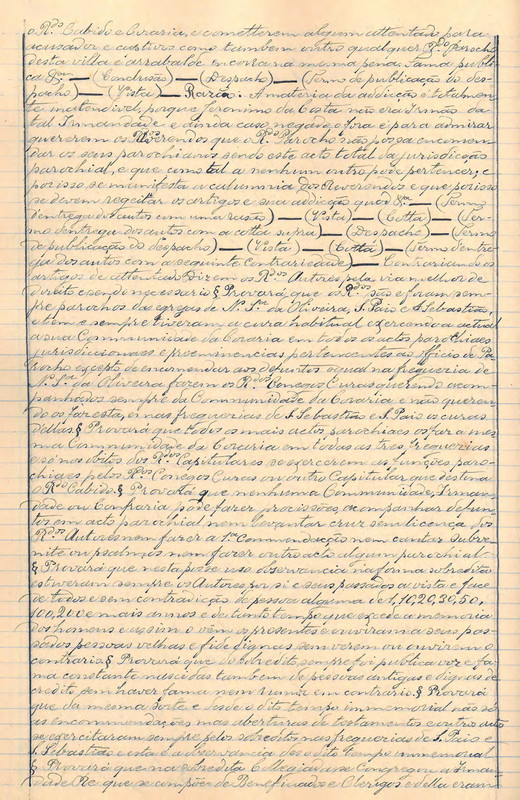 o R.do Cabido e Coraria, e cometterem algum attentado para
accusador e cativos como tambem outro qualquer R.do Parocho
desta villa e arrabalde incorra na mesma pena. Fama publi-
ca Pn — (Conclusão) — (Despacho) — (Termo de publicação do des-
pacho) — (Vista) — Razão: A materia da addicção é totalmen-
te inattendivel, porque Jeronimo da Costa não era Irmão da
tal Irmandade e ainda caso negado o fora é para admirar
quererem os Reverendos que o R.do Parocho não possa encomen-
dar os seus parochianos sendo este acto total da jurisdicção
parochial, e que como tal a nenhum outro pode pertencer; e
por isso se manifesta a calumnia dos Reverendos e que por isso
se devem regeitar os artigos e sua addicção quod Pn — (Termo
d'entrega dos autos com uma rasão) — (Vista) — (Cotta) — (Ter-
mo d'entrega dos autos com a cotta supra) — (Despacho) — (Termo
de publicação do despacho) — (Vista) — (Cotta) — (Termo d'entre-
ga dos autos com a seguinte Contrariedade) — Contrariando os
artigos de attentar Dizem os R.dos Autores pela via melhor de
direito e sendo necessario § Provará que os R.dos são e foram sem-
pre parochos das egrejas de N. S.ra da Oliveira, S. Paio e S. Sebastião
e tem e sempre tiveram a cura habitual exercendo a actual
a sua Communidade da Coraria em todos os actos parochiaes
jurisdiccionaes e proeminencias pertencentes ao officio de Pa-
rocho excepto de encomendar aos defuntos o qual na freguezia de
N. S.ra da Oliveira fazem os R.dos Conegos Curas querendo acom-
panhados sempre da Communidade da Coraria e não queren-
do os faz esta, e nas freguezias de S. Sebastião e S. Paio os curas
dellas § Provará que todos os mais actos parochiaes os faz a mes-
ma Communidade da Coraria em todas as tres freguezias
e só nos obitos dos R.dos Capitulares se exercerem as funções paro-
chiaes pelos R.dos Conegos Curas ou outro Capitular que destina
o R.do Cabido. § Provará que nenhuma Communidade, Irman-
dade ou Confraria pode fazer procissões acompanhar defun-
tos em acto parochial nem levantar cruz sem licença dos
R.dos Autores nem fazer a 1.ra Commendação nem cantar Subve-
nite ou psalmos nem fazer outro acto algum parochial
§ Provará que nesta posse uso observancia na forma sobredita
estiveram sempre os Autores por si e seus passados a vista e face
de todos e sem contradição de pessoa alguma de 1, 10, 20, 30, 50,
100, 200 e mais annos e de tanto tempo que excede a memoria
dos homens e assim o vêm os presentes e ouviram a seus pas-
sados pessoas velhas e fidedignas sem verem ou ouvirem o
contrario. § Provará que do sobredito sempre foi publica voz e fa-
ma constante nascidas tambem de pessoas antigas e dignas de
credito sem haver fama nem rumor em contrario. § Provará
que da mesma sorte e desde o dito tempo immemorial não só
as encommendações mas aberturas de testamentos e outro acto
se exercitaram sempre pelos sobreditos nas freguezias de S. Paio e
S. Sebastião e esta é a observancia desde o dito tempo immemorial
§ Provará que na sobredita Collegiada se Congregou a Irman-
dade Re que se compoz de Beneficiados e Clerigos e della eram